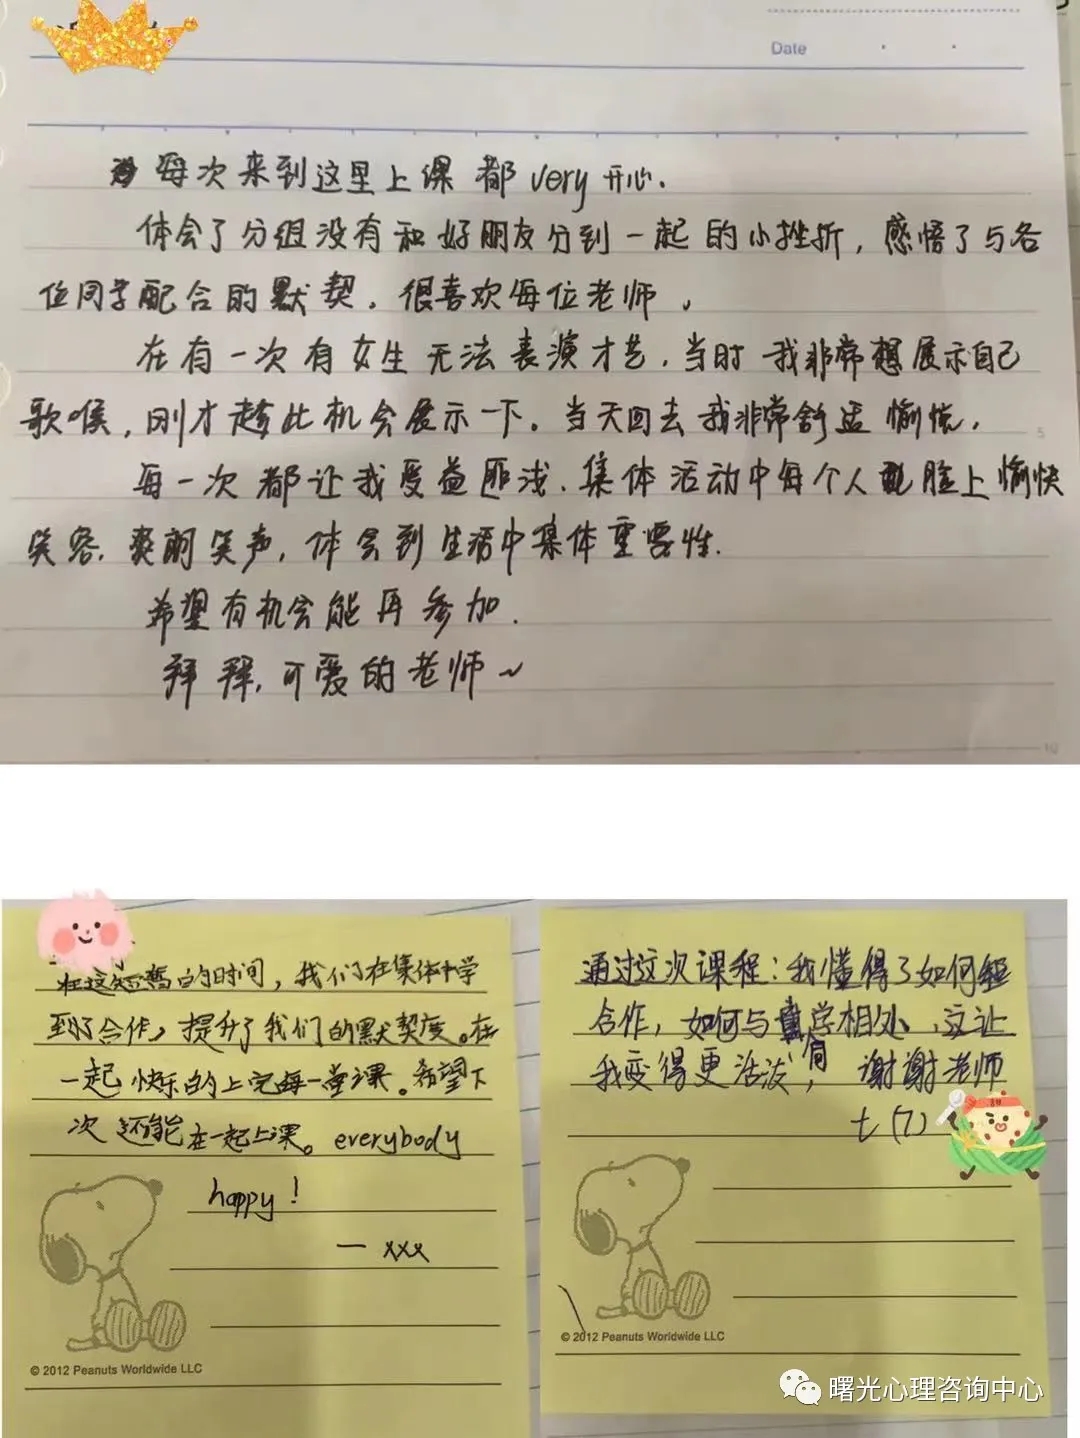 Date
每次来到这里上课都very开心.
体会了分组没有和好朋友分到一起的小挫折，感悟了与各
位同学配合的默契。很喜欢每位老师。
在有一次有女生无法表演才艺.当时我非常想展示自己
歌喉,刚才趁此机会展示一下。当天回去我非常舒适愉悦.
每一次都让我受益匪浅.集体活动中每个人脸上愉快
笑容.爽朗笑声,体会到生活中集体重要性.
希望有机会能再参加.
拜拜,可爱的老师~
5
10
在这短暂的时间，我们在集体中学
到了合作，提升了我们的默契度。在
一起快乐的上完每一堂课。希望下
次还能在一起上课。everybody
happy!
— xxx
© 2012 Peanuts Worldwide LLC
通过这次课程：我懂得了如何
合作，如何与相处、这让
我变得更活泼，谢谢老师
© 2012 Peanuts Worldwide LLC
曙光心理咨询中心